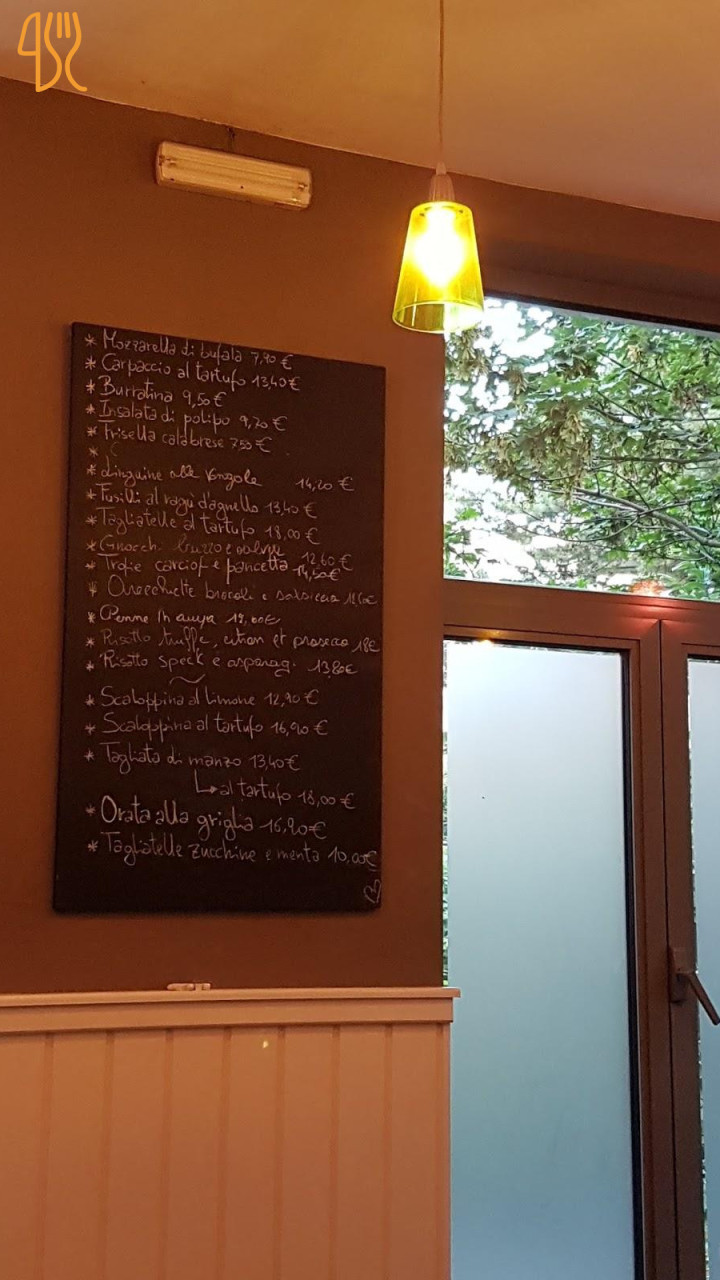 * Mozzarella di bufala 7,90 €
* Carpaccio al tartufo 13,40 €
* Burratina 9,50 €
* Insalata di polipo 9,70 €
* Frisella calabrese 7,50 €
*
* Linguine alle Vongole 14,20 €
* Fusilli al ragù d'agnello 13,40 €
* Tagliatelle al tartufo 18,00 €
* Gnocchi e 12,60 €
* Trofie carciofi e pancetta 14,50 €
* Orecchiette brocoli e salsiccia
* Penne 12,00€
* Risotto truffe, citron et prosecco 18€
* Risotto speck e asparagi 13,80€
* Scaloppina al limone 12,90 €
* Scaloppina al tartufo 16,90 €
* Tagliata di manzo 13,40€
↳ al tartufo 18,00 €
* Orata alla griglia 16,90€
* Tagliatelle zucchine e menta 10,00€